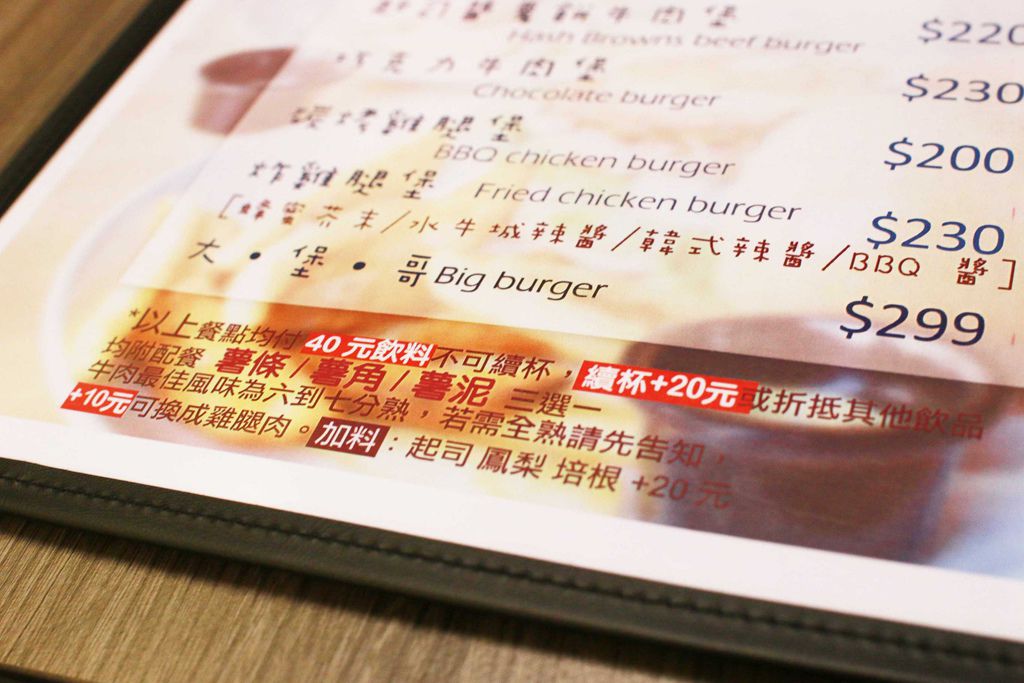 牛肉堡
Hash Browns beef burger $220
巧克力牛肉堡
Chocolate burger $230
碳烤雞腿堡
BBQ chicken burger $200
炸雞腿堡 Fried chicken burger $230
[蜂蜜芥末/水牛城辣醬/韓式辣醬/BBQ 醬]
大・堡・哥 Big burger $299
*以上餐點均付 40 元飲料 不可續杯，續杯+20元 或折抵其他飲品
均附配餐 薯條 / 薯角 / 薯泥 三選一
牛肉最佳風味為六到七分熟，若需全熟請先告知，
+10元可換成雞腿肉。加料：起司 鳳梨 培根 +20 元